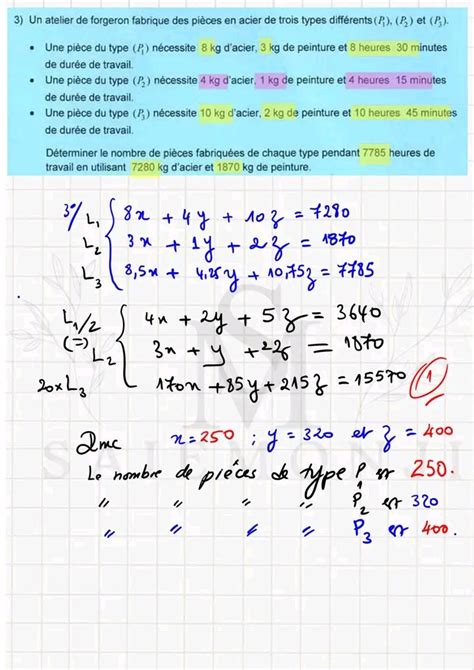 3) Un atelier de forgeron fabrique des pièces en acier de trois types différents (P₁), (P₂) et (P₃).
• Une pièce du type (P₁) nécessite 8 kg d'acier, 3 kg de peinture et 8 heures 30 minutes
de durée de travail.
• Une pièce du type (P₂) nécessite 4 kg d'acier, 1 kg de peinture et 4 heures 15 minutes
de durée de travail.
• Une pièce du type (P₃) nécessite 10 kg d'acier, 2 kg de peinture et 10 heures 45 minutes
de durée de travail.
Déterminer le nombre de pièces fabriquées de chaque type pendant 7785 heures de
travail en utilisant 7280 kg d'acier et 1870 kg de peinture.
3°/ L₁ { 8x + 4y + 10z = 7280
L₂ { 3x + 1y + 2z = 1870
L₃ { 8,5x + 4,25y + 10,75z = 7785
L₁/2 { 4x + 2y + 5z = 3640
(=) L₂ { 3x + y + 2z = 1870
20xL₃ { 170x + 85y + 215z = 15570 (1)
Dmc x = 250 ; y = 320 et z = 400
Le nombre de pièces de type P₁ est 250.
" " " " P₂ est 320
" " " " P₃ est 400.